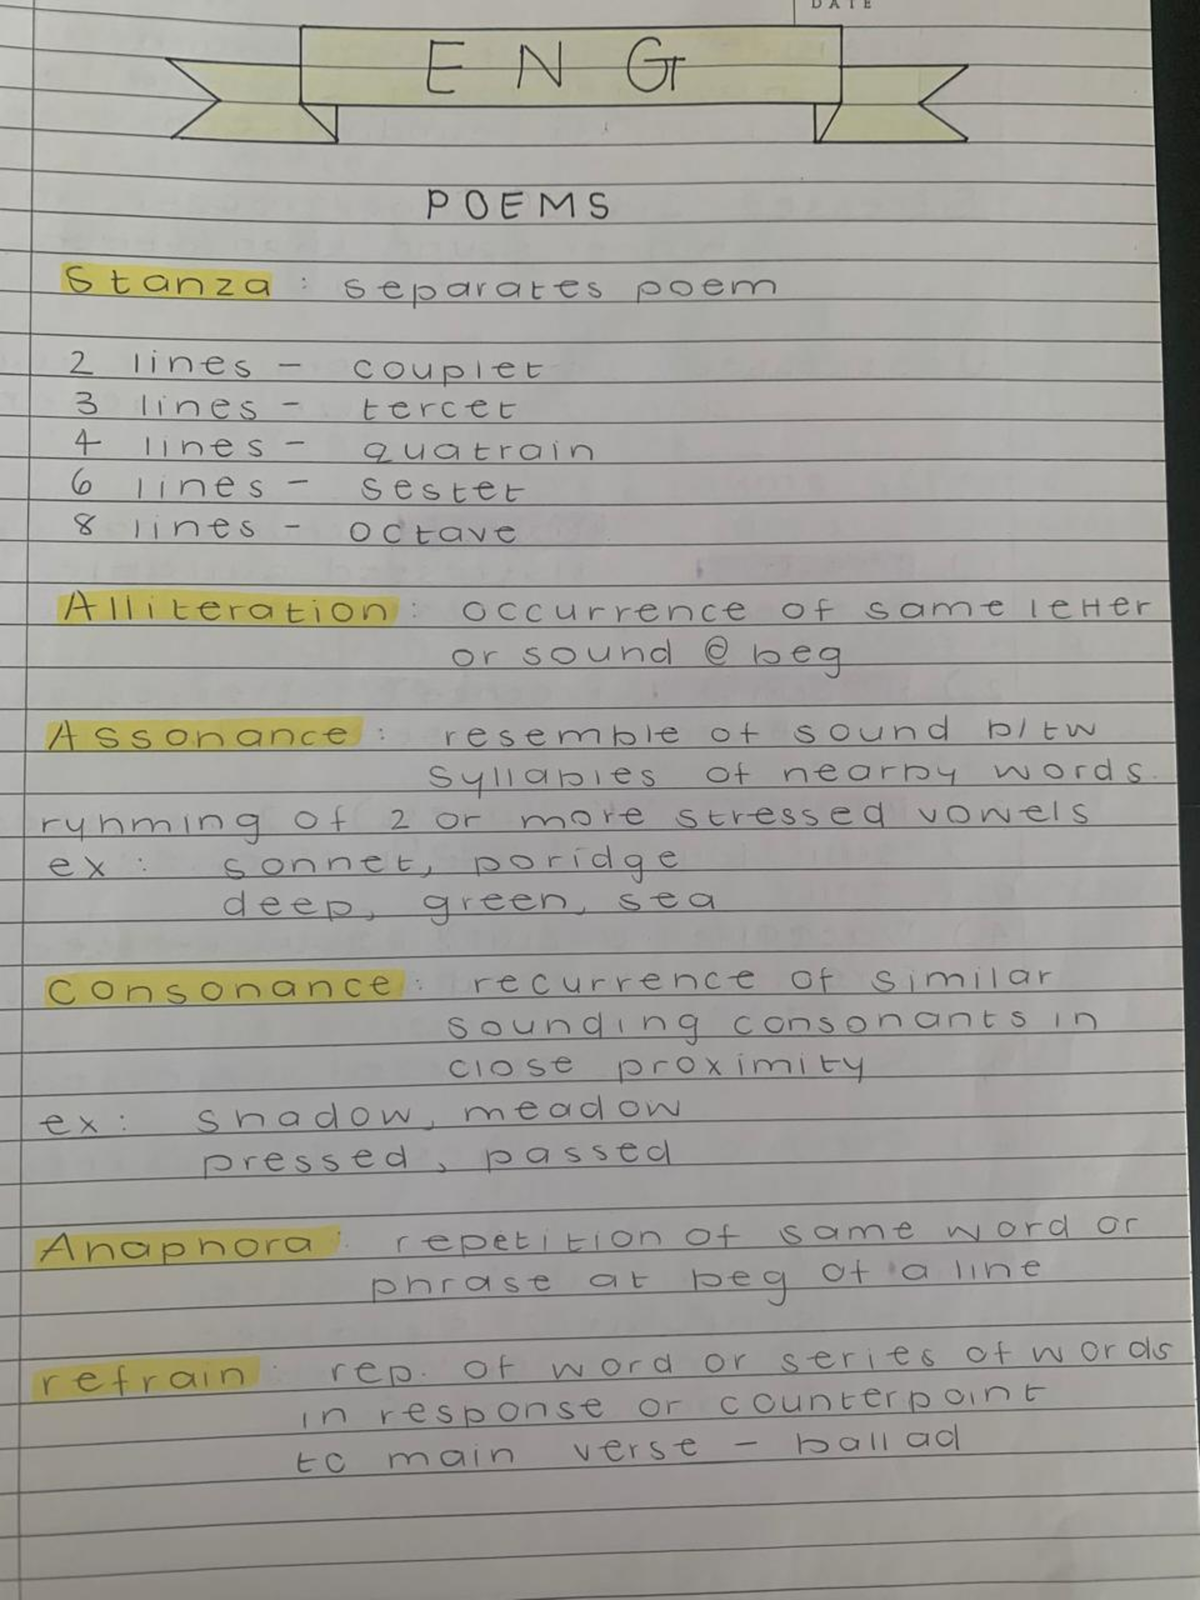 DATE
ENG
POEMS
Stanza : separates poem
2 lines - couplet
3 lines - tercet
4 lines - quatrain
6 lines - sestet
8 lines - octave
Alliteration : occurrence of same letter
or sound @ beg
Assonance : resemble of sound b/tw
syllables of nearby words.
ryhming of 2 or more stressed vowels
ex : sonnet, poridge
deep, green, sea
Consonance : recurrence of similar
sounding consonants in
close proximity
ex : shadow, meadow
pressed, passed
Anaphora : repetition of same word or
phrase at beg of a line
refrain : rep. of word or series of words
in response or counterpoint
to main verse - ballad